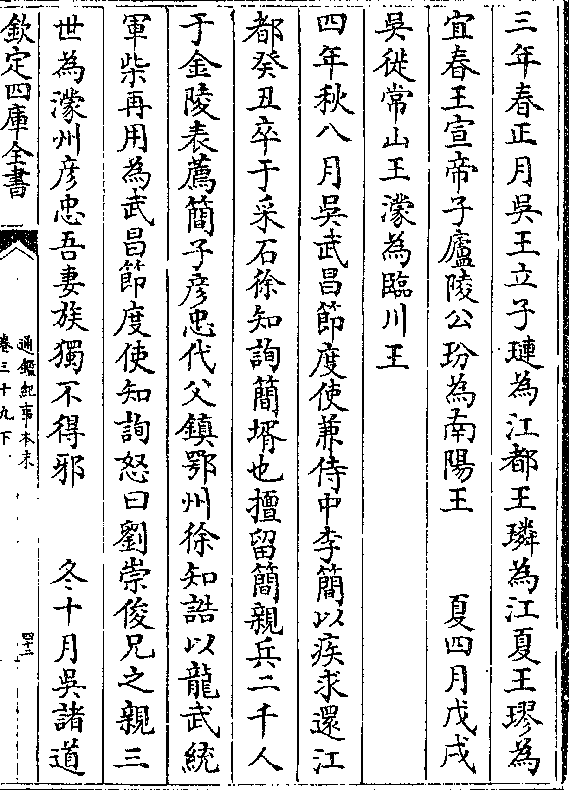 三年春正月吳王立子璉為江都王璘為江夏王璆為
宜春王宣帝子廬陵公玢為南陽王　夏四月戊戌
吳徙常山王濛為臨川王
四年秋八月吳武昌節度使兼侍中李簡以疾求還江
都癸丑卒于采石徐知詢簡壻也擅留簡親兵二千人
于金陵表薦簡子彦忠代父鎮鄂州徐知誥以龍武統
軍柴再用為武昌節度使知詢怒曰劉崇俊兄之親三
世為濠州彦忠吾妻族獨不得邪　冬十月吳諸道
欽定四庫全書
通鑑紀事本末
卷三十九下
四十二